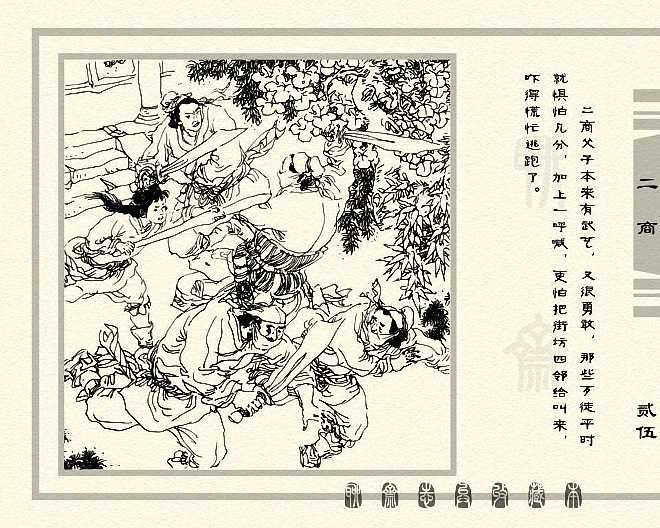 二商父子本来有武艺，又很勇敢，那些歹徒平时
就惧怕几分，加上一呼喊，更怕把街坊四邻给叫来，
吓得慌忙逃跑了。
二商
贰伍